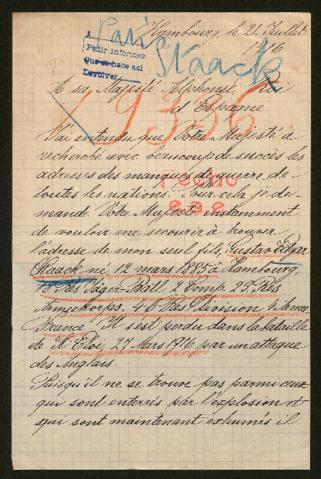 Hambourg, le 21 Juillet
1916
A
Paris
Pedir informes
Que se hace así
Devolver
Staack
A sa Majesté Alphonse, Roi
d'Espagne
19356
J'ai entendu que Votre Majesté a
recherché avec beaucoup de succès les
adresses des manqués de guerre de
toutes les nations. Pour cela je de-
mande Votre Majesté instamment
de vouloir me secourir à trouver
l'adresse de mon seul fils, Gustav Edgar
Staack né 12 mars 1885 à Hambourg,
18 Rés. Jäger-Batl. 2 Comp. 25 Rés.
Armeekorps, 46 Rés. Division,
France. Il s'est perdu dans la bataille
de St. Eloi, 27 Mars 1916 par un attaque
des Anglais.
Puisqu'il ne se trouve pas parmi ceux
qui sont enterrés par l'explosion et
qui sont maintenant exhumés il